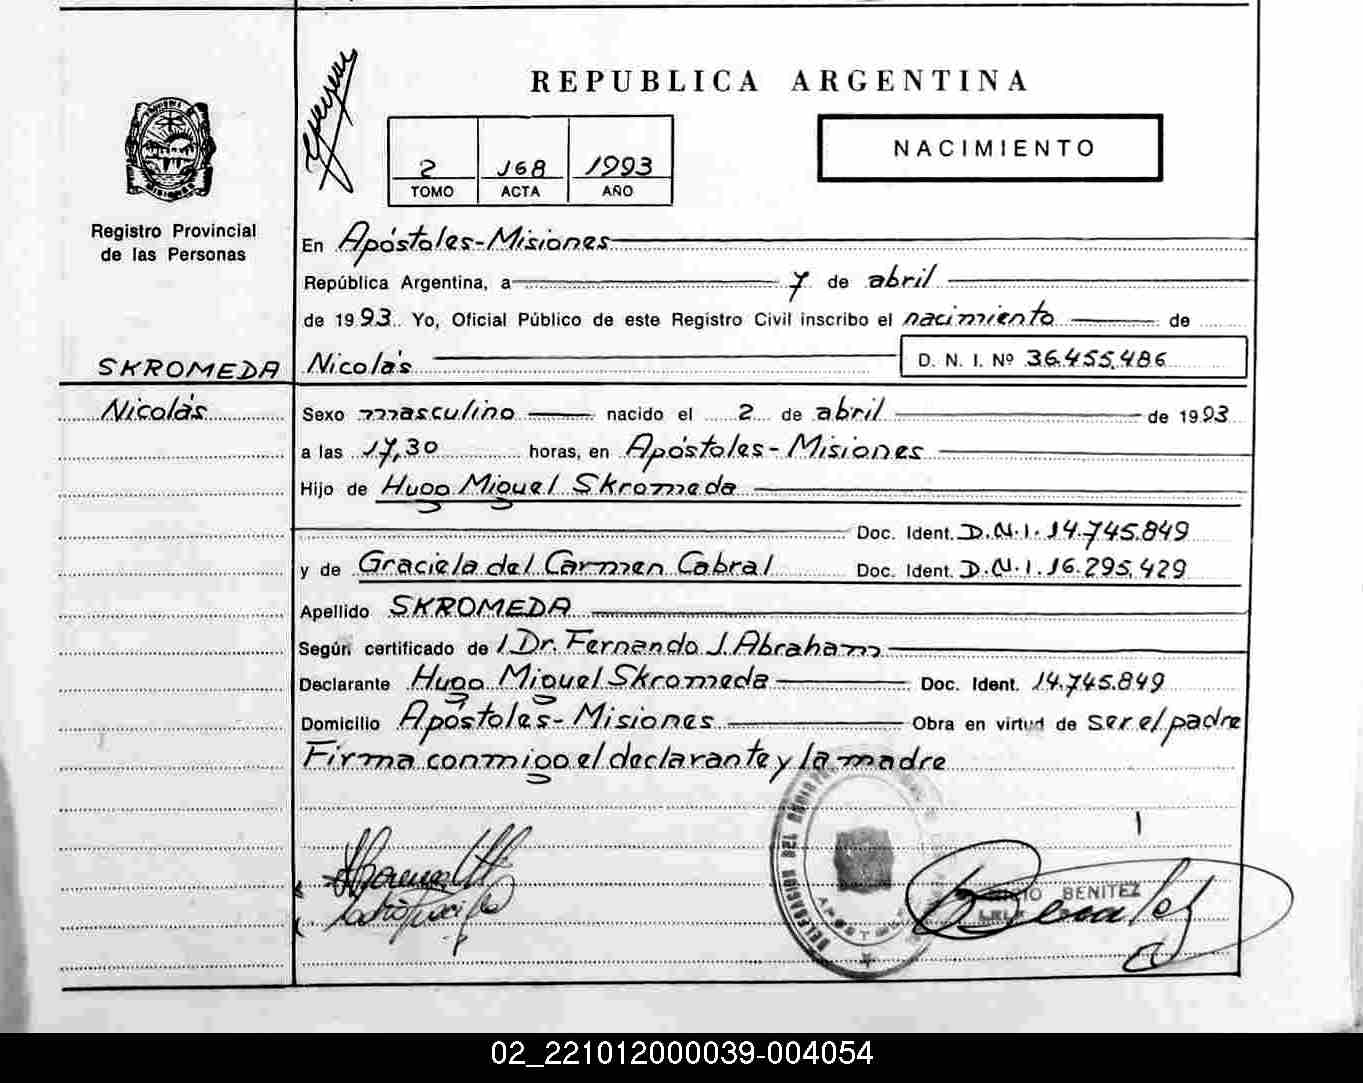 REPUBLICA ARGENTINA
NACIMIENTO
2 168 1993
TOMO ACTA AÑO
Registro Provincial
de las Personas
En Apóstoles-Misiones
República Argentina, a 7 de abril
de 1993 Yo, Oficial Público de este Registro Civil inscribo el nacimiento de
SKROMEDA Nicolás D. N. I. Nº 36.455.486
Nicolás Sexo masculino nacido el 2 de abril de 1993
a las 17,30 horas, en Apóstoles-Misiones
Hijo de Hugo Miguel Skromeda
Doc. Ident. D.N.I. 14.745.849
y de Graciela del Carmen Cabral Doc. Ident. D.N.I. 16.295.429
Apellido SKROMEDA
Según certificado de l Dr. Fernando J. Abraham
Declarante Hugo Miguel Skromeda Doc. Ident. 14.745.849
Domicilio Apóstoles-Misiones Obra en virtud de ser el padre
Firma conmigo el declarante y la madre
DELEGACION DEL
BENITEZ
02_221012000039-004054